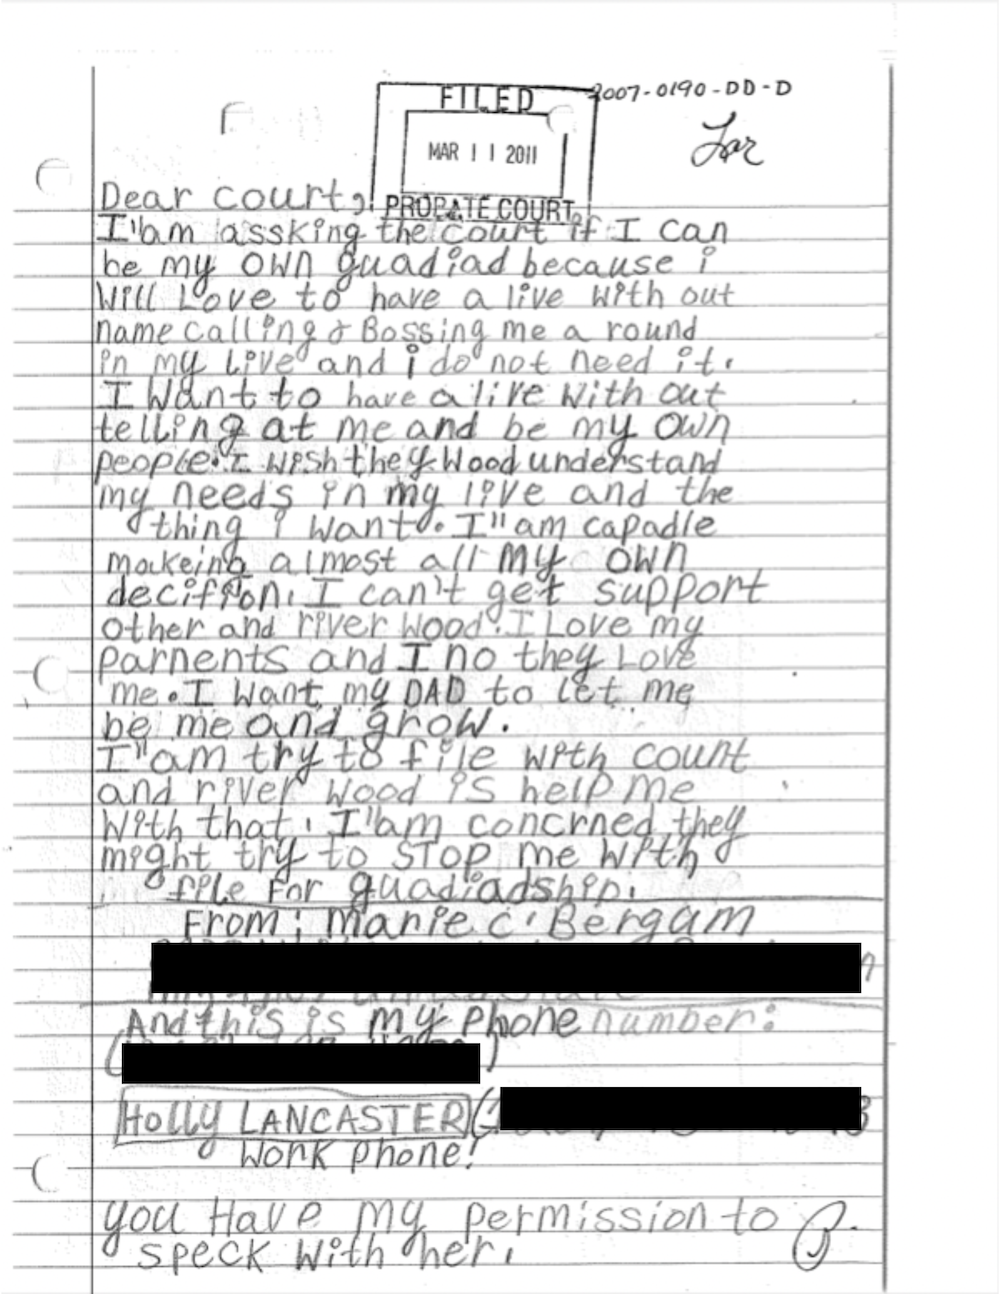 FILED
2007-0190-DD-D
MAR 11 2011
PROBATE COURT
Dear court,
I"am assking the court if I can
be my own guadiad because i
Will Love to have a live with out
name calling & Bossing me a round
in my live and i do not need it.
I Want to have a live with out
telling at me and be my own
people. I wish they Wood understand
my needs in my live and the
thing i want. I"am capadle
makeing almost all my own
decifion. I can't get support
other and river wood. I Love my
Parnents and I no they Love
me. I want my DAD to let me
be me and grow.
I"am try to file with count
and river wood is help me
With that. I"am concrned they
might try to STOP me with
file For guadiadship.
From: Marie c. Bergam
And this is my phone number:
( )
Holly LANCASTER (
Work phone!
you Have my permission to
speck with her.